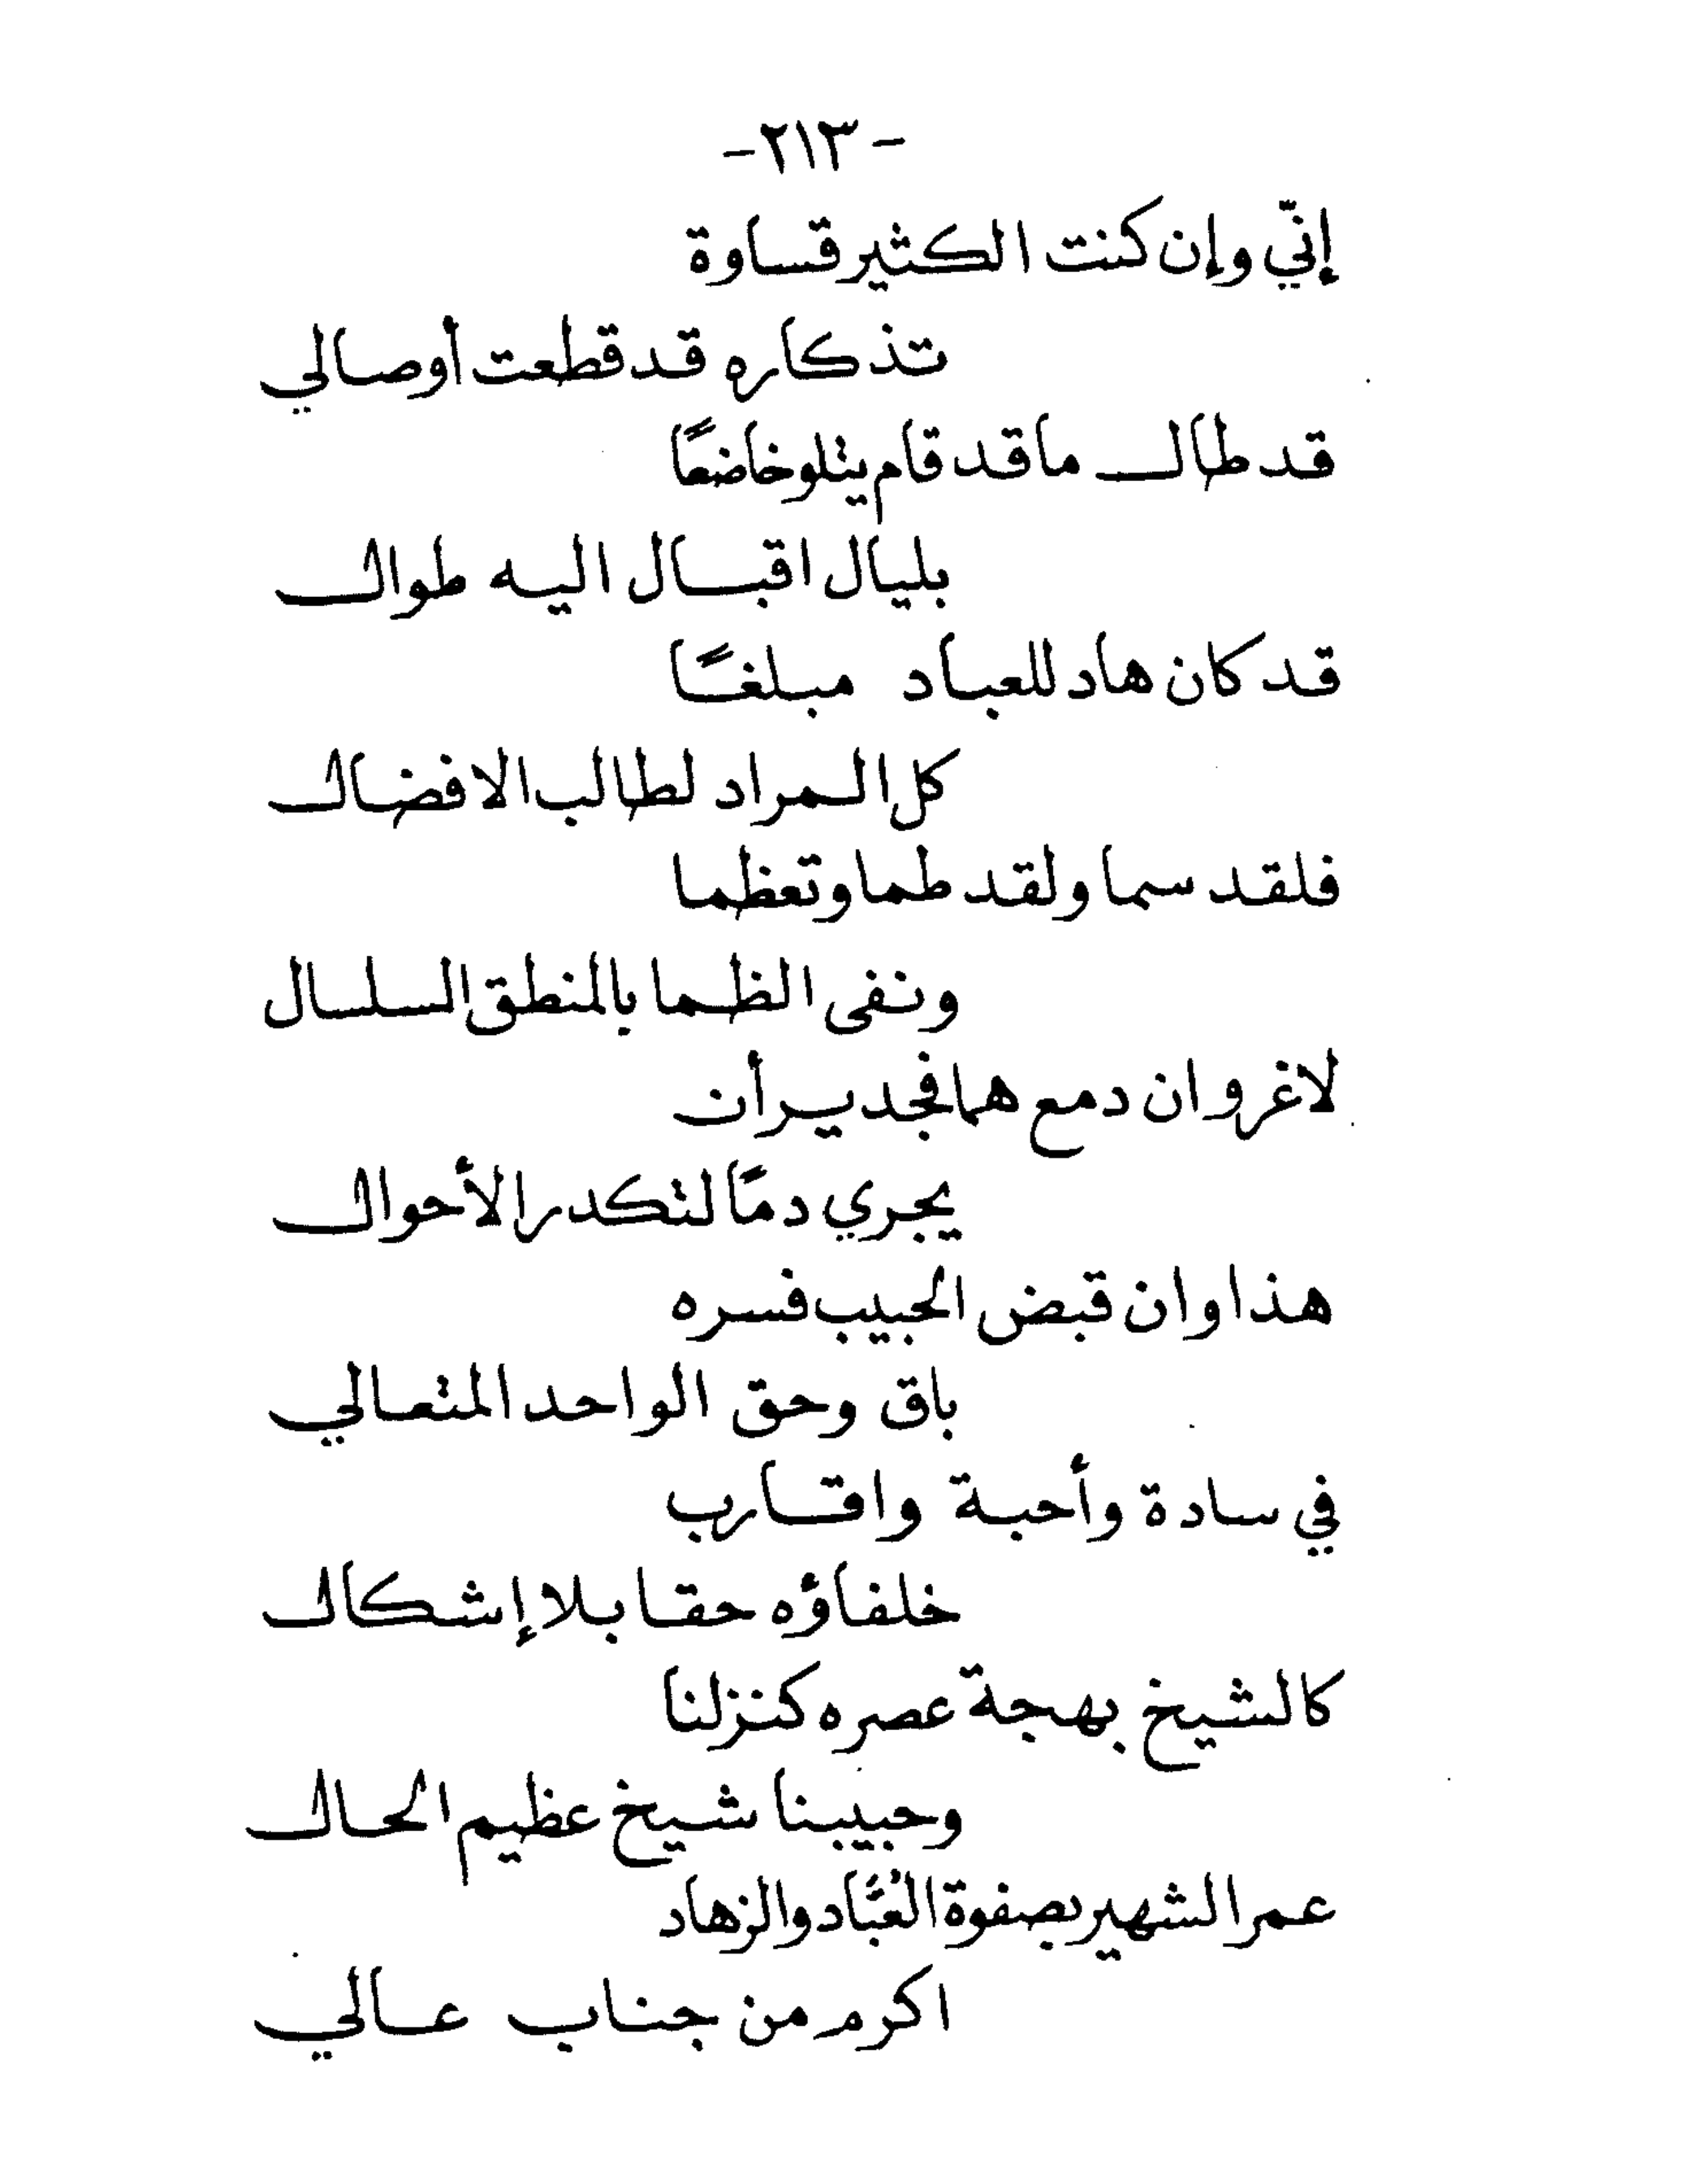 - ٢١٣ -
إنّي وإن كنت الكثير قساوة
تذكاره قد قطعت أوصالي
قد طال ما قد قام يتلو خاضعًا
بليال اقبال اليه طوال
قد كان هاد للعباد مبلغًا
كل المراد لطالب الافضال
فلقد سما ولقد طما وتعظما
ونفى الظما بالمنطق السلسال
لاغرو ان دمع هما فجدير أن
يجري دمًا لتكدر الأحوال
هذا وان قبض الحبيب فسره
باق وحق الواحد المتعالي
في سادة وأحبة واقارب
خلفاؤه حقا بلا إشكال
كالشيخ بهجة عصره كنز لنا
وحبيبنا شيخ عظيم الحال
عمر الشهير بصفوة العُبَّاد والزهاد
اكرم من جناب عالي